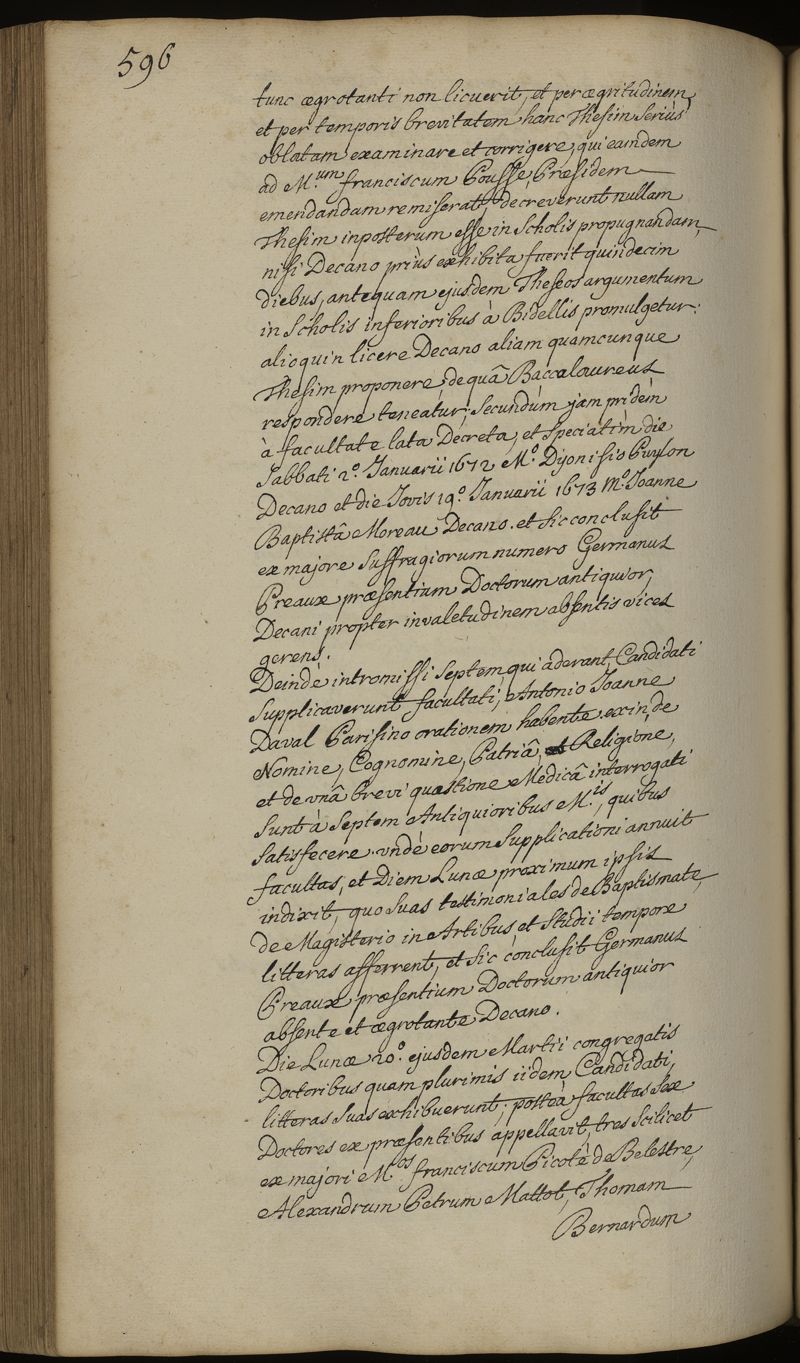 596
tunc ægrotanti non licuerit, et per ægritudinem,
et per temporis brevitatem hanc Thesim Seriùs
oblatam examinare et corrigere, qui eamdem
ad M.um franciscum Pousse, Præsidem
emendandam remiserat, decreverunt nullam
Thesim inposterum esse in Scholis propugnandam,
nisi Decano priùs exhibita fuerit quindecim
diebus, antequam ejusdem Theseos argumentum
in Scholis inferioribus à Bidellis promulgetur:
alioquin licere Decano aliam quamcunque
Thesim proponere, de quâ Baccalaureus
respondere teneatur; Secundùm jam pridem
à facultate lata Decreta, et Speciatim die
Sabbati 2.º Januarii 1672 M.º Dyonisio Puylon
Decano et die Jovis 19.º Januarii 1673 M.º Joanne
Baptistâ Moreau Decano. et Sic conclusit
ex majore Suffragiorum numero Germanus
Preaux præsentium Doctorum antiquior,
Decani propter invaletudinem absentis vices
gerens.
Deindè intromissi Septem qui aderant, Candidati
Supplicaverunt facultati, Antonio Joanne
Daval Parisino orationem habente. exinde
Nomine, Cognomine, Patriâ, et Religione,
et de unâ brevi quæstione Medicâ interrogati
Sunt à Septem Antiquioribus M.is, quibus
Satisfecere. undè eorum Supplicationi annuit
facultas, et Diem Lunæ proximum ipsis
indixit, quo Suas testimoniales de Baptismate,
de Magisterio in Artibus, et Studii tempore
litteras afferrent, et Sic conclusit Germanus
Preaux præsentium Doctorum antiquior
absente et ægrotante Decano.
Die Lunæ 20.º ejusdem Martii congregatis
Doctoribus quam plurimis iidem Candidati
litteras Suas exhibuerunt; posteà facultas Sex
Doctores ex præsentibus appellavit, tres Scilicet
ex majori M.os franciscum Picoté de Belestre,
Alexandrum Petrum Mattot, Thomam
Bernardum